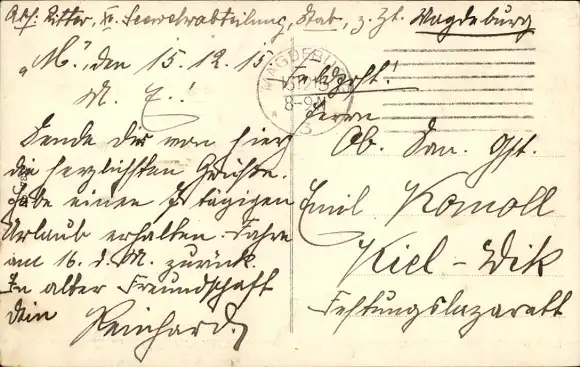 Abs: Ritter, II. Seewehrabteilung, Stab, z. Zt. Magdeburg
"M", den 15.12.15
M. E.!
Sende Dir von hier
die herzlichsten Grüße.
Habe einen tägigen
Urlaub erhalten. Fahre
am 16. d. M. zurück.
In alter Freundschaft
Dein Reinhard
MAGDEBURG
8-9N
Feldpost!
Herrn
Ob. San. Gst.
Emil Komoll
Kiel - Wik
Festungslazarett